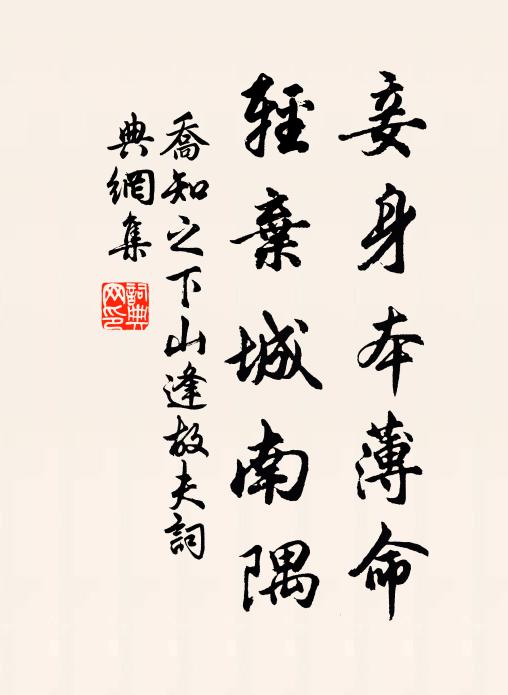 妾身本薄命
輕棄城南隅
喬知之下山逢故夫詞
典網集
詞典网印